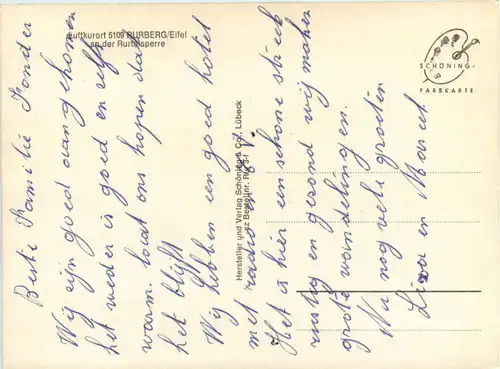 Luftkurort 5109 RURBERG/Eifel
an der Rurtalsperre
SCHÖNING-
FARBKARTE
Hersteller und Verlag Schöning & Co., Lübeck
Bestellnr. Rur
Beste Familie
Wij zijn goed aangekomen
het weder is goed en zelfs
warm. laat ons hopen dat
het blijft
Wij hebben een goed hotel
met radio en t.v.
Het is hier een schone streek
rustig en gezond wij maken
grote wandelingen.
Nu nog vele groeten
en Marcel.